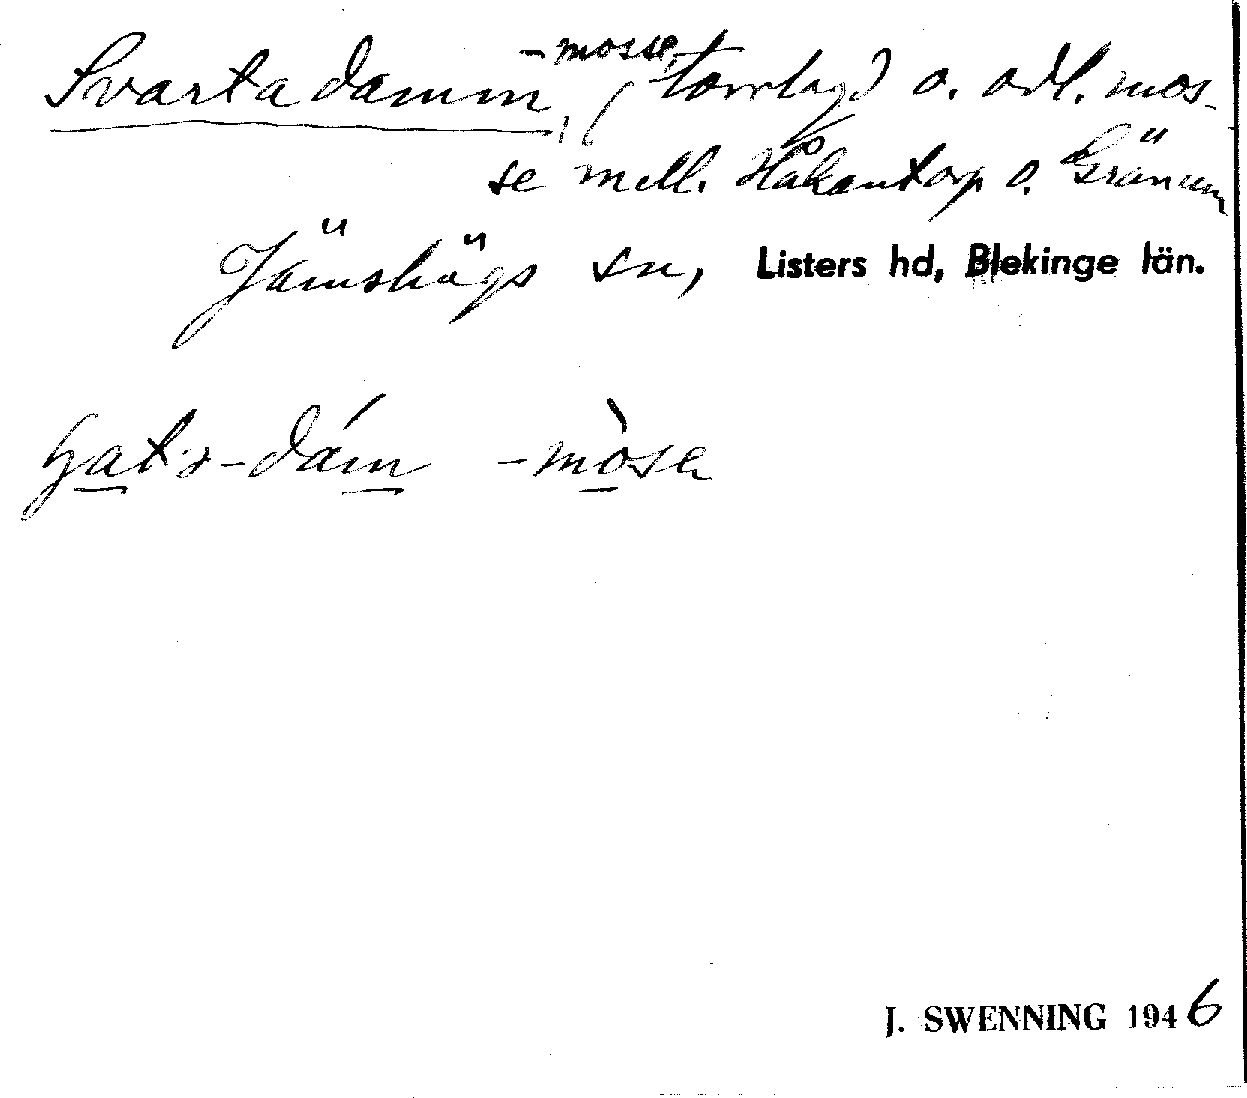 Svarta damm, -mosse, torrlagd o. odl. mos-
se mell. Håkantorp o. Gränum
Jämshögs sn, Listers hd, Blekinge län.
-dám -mòsa
J. SWENNING 1946